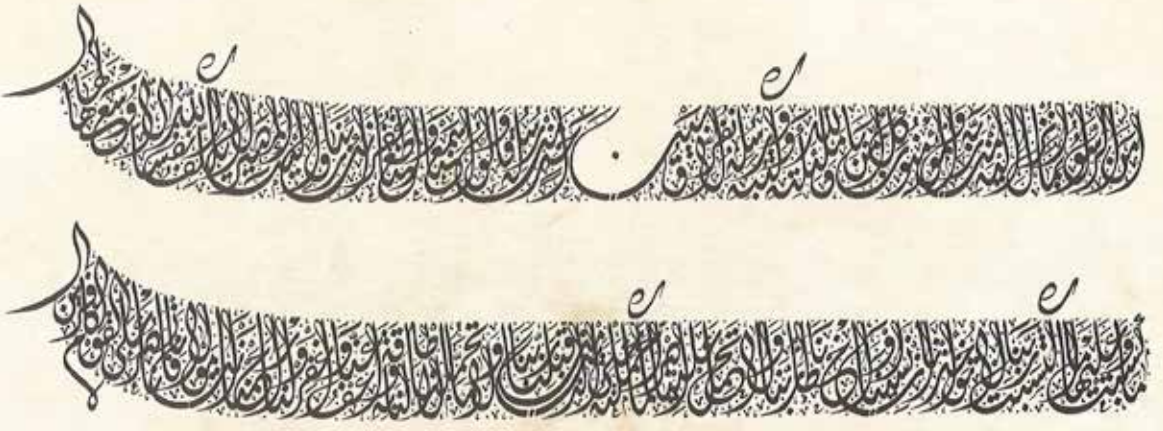 آمن الرسول بما أنزل إليه من ربه والمؤمنون كل آمن بالله وملئكته وكتبه ورسله لا نفرق بين أحد من رسله وقالوا سمعنا وأطعنا غفرانك ربنا وإليك المصير لا يكلف الله نفسا إلا وسعها لها
ما كسبت وعليها ما اكتسبت ربنا لا تؤاخذنا إن نسينا أو أخطأنا ربنا ولا تحمل علينا إصرا كما حملته على الذين من قبلنا ربنا ولا تحملنا ما لا طاقة لنا به واعف عنا واغفر لنا وارحمنا أنت مولانا فانصرنا على القوم الكافرين